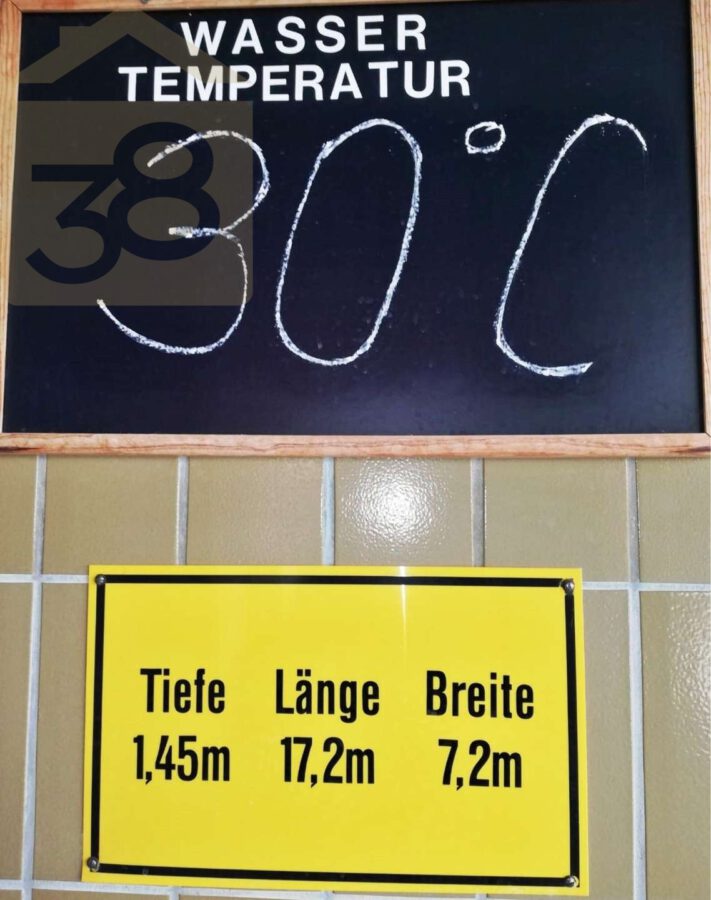 WASSER
TEMPERATUR
30°C
38
Tiefe Länge Breite
1,45m 17,2m 7,2m